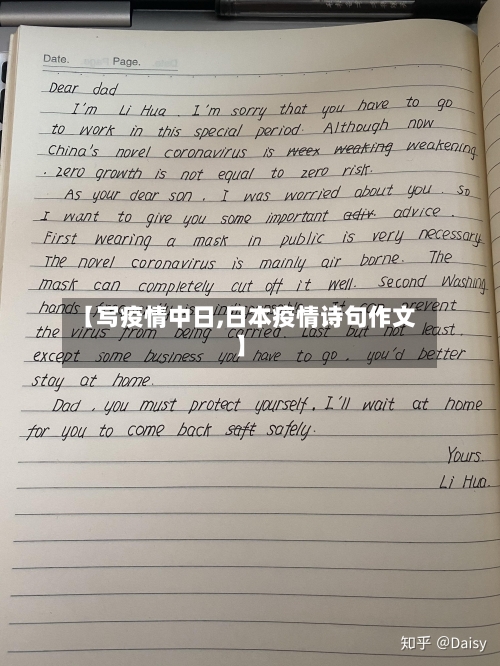 Date. Page.
Dear dad
I'm Li Hua. I'm sorry that you have to go
to work in this special period. Although now
China's novel coronavirus is weex weaking weakening
. zero growth is not equal to zero risk.
As your dear son, I was worried about you. So
I want to give you some important adiv. advice.
First wearing a mask in public is very necessary
The novel coronavirus is mainly air borne. The
mask can completely cut off it well. Second Washing
hands prevent
【写疫情中日,日本疫情诗句作文
】
the virus from being carried. Last but not least.
except some business you have to go, you'd better
stay at home.
Dad, you must protect yourself, I'll wait at home
for you to come back saft safely.
Yours.
Li Hua.
知乎 @Daisy